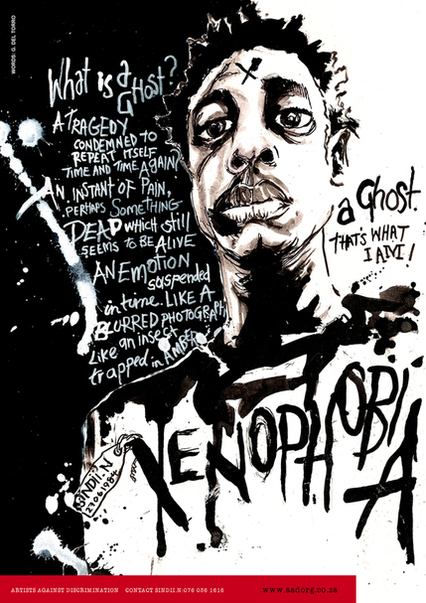 WORDS: G. DEL TORRO
What is a Ghost?
A TRAGEDY
CONDEMNED TO
REPEAT ITSELF
TIME AND TIME AGAIN
AN INSTANT OF PAIN,
PERHAPS SOMETHING
DEAD which still
SEEMS TO BE ALIVE
AN EMOTION
suspended
in time. LIKE A
BLURRED PHOTOGRAPH,
Like an insect
trapped in AMBER
a Ghost.
THAT'S WHAT
I AM!
XENOPHOBIA
SINDII.N
27061984
ARTISTS AGAINST DISCRIMINATION CONTACT SINDII.N:076 036 1616 www.asdorg.co.za